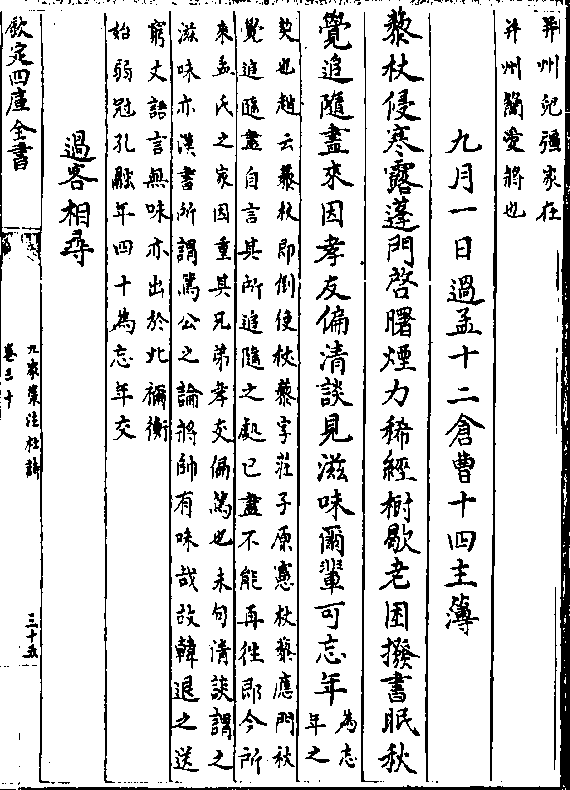 并州兒彊家在
并州關愛將也
九月一日過孟十二倉曹十四主簿
藜杖侵寒露蓬門啓曙煙力稀經樹歇老困撥書眠秋
覺追隨盡來因孝友偏清談見滋味爾輩可忘年
為忘
年之
契也趙云藜杖即倒使杖藜字莊子原憲杖藜應門秋
覺追隨盡自言其所追隨之處已盡不能再徃即今所
來孟氏之家因重其兄弟孝友偏篤也末句清談謂之
滋味亦漢書所謂篤公之論將帥有味哉故韓退之送
窮文語言無味亦出於此禰衡
始弱冠孔融年四十為忘年交
過客相尋
欽定四庫全書
九家集注杜詩
卷三十
三十五